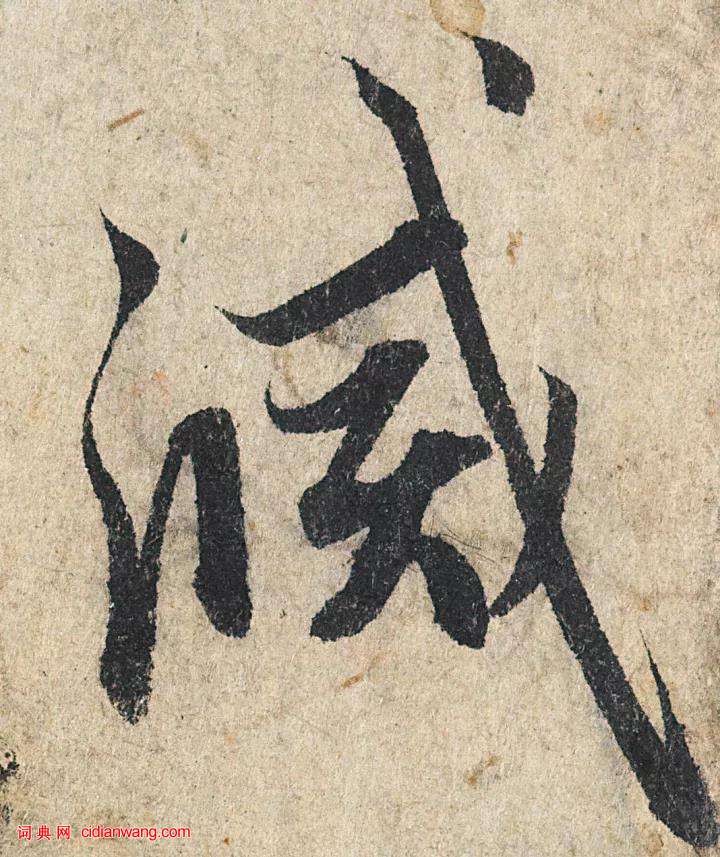 滅
词典网 cidianwang.com